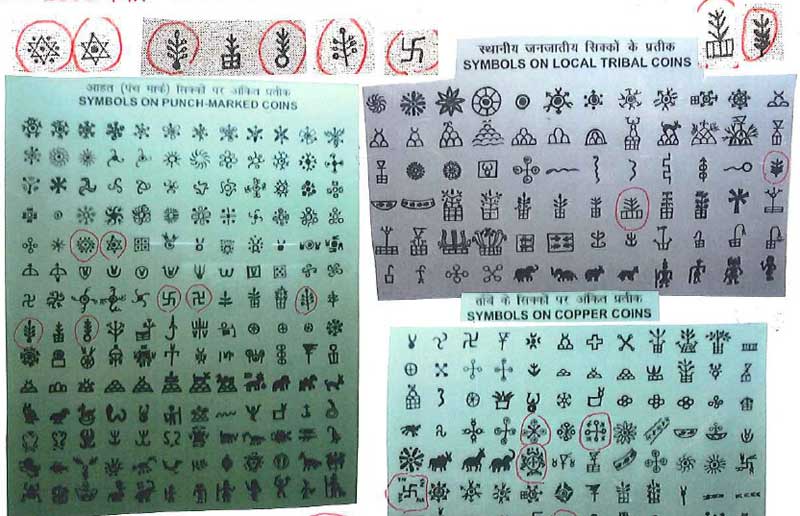 स्थानीय जनजातीय सिक्कों के प्रतीक
SYMBOLS ON LOCAL TRIBAL COINS
आहत (पंच मार्क) सिक्कों पर अंकित प्रतीक
SYMBOLS ON PUNCH-MARKED COINS
तांबे के सिक्कों पर अंकित प्रतीक
SYMBOLS ON COPPER COINS